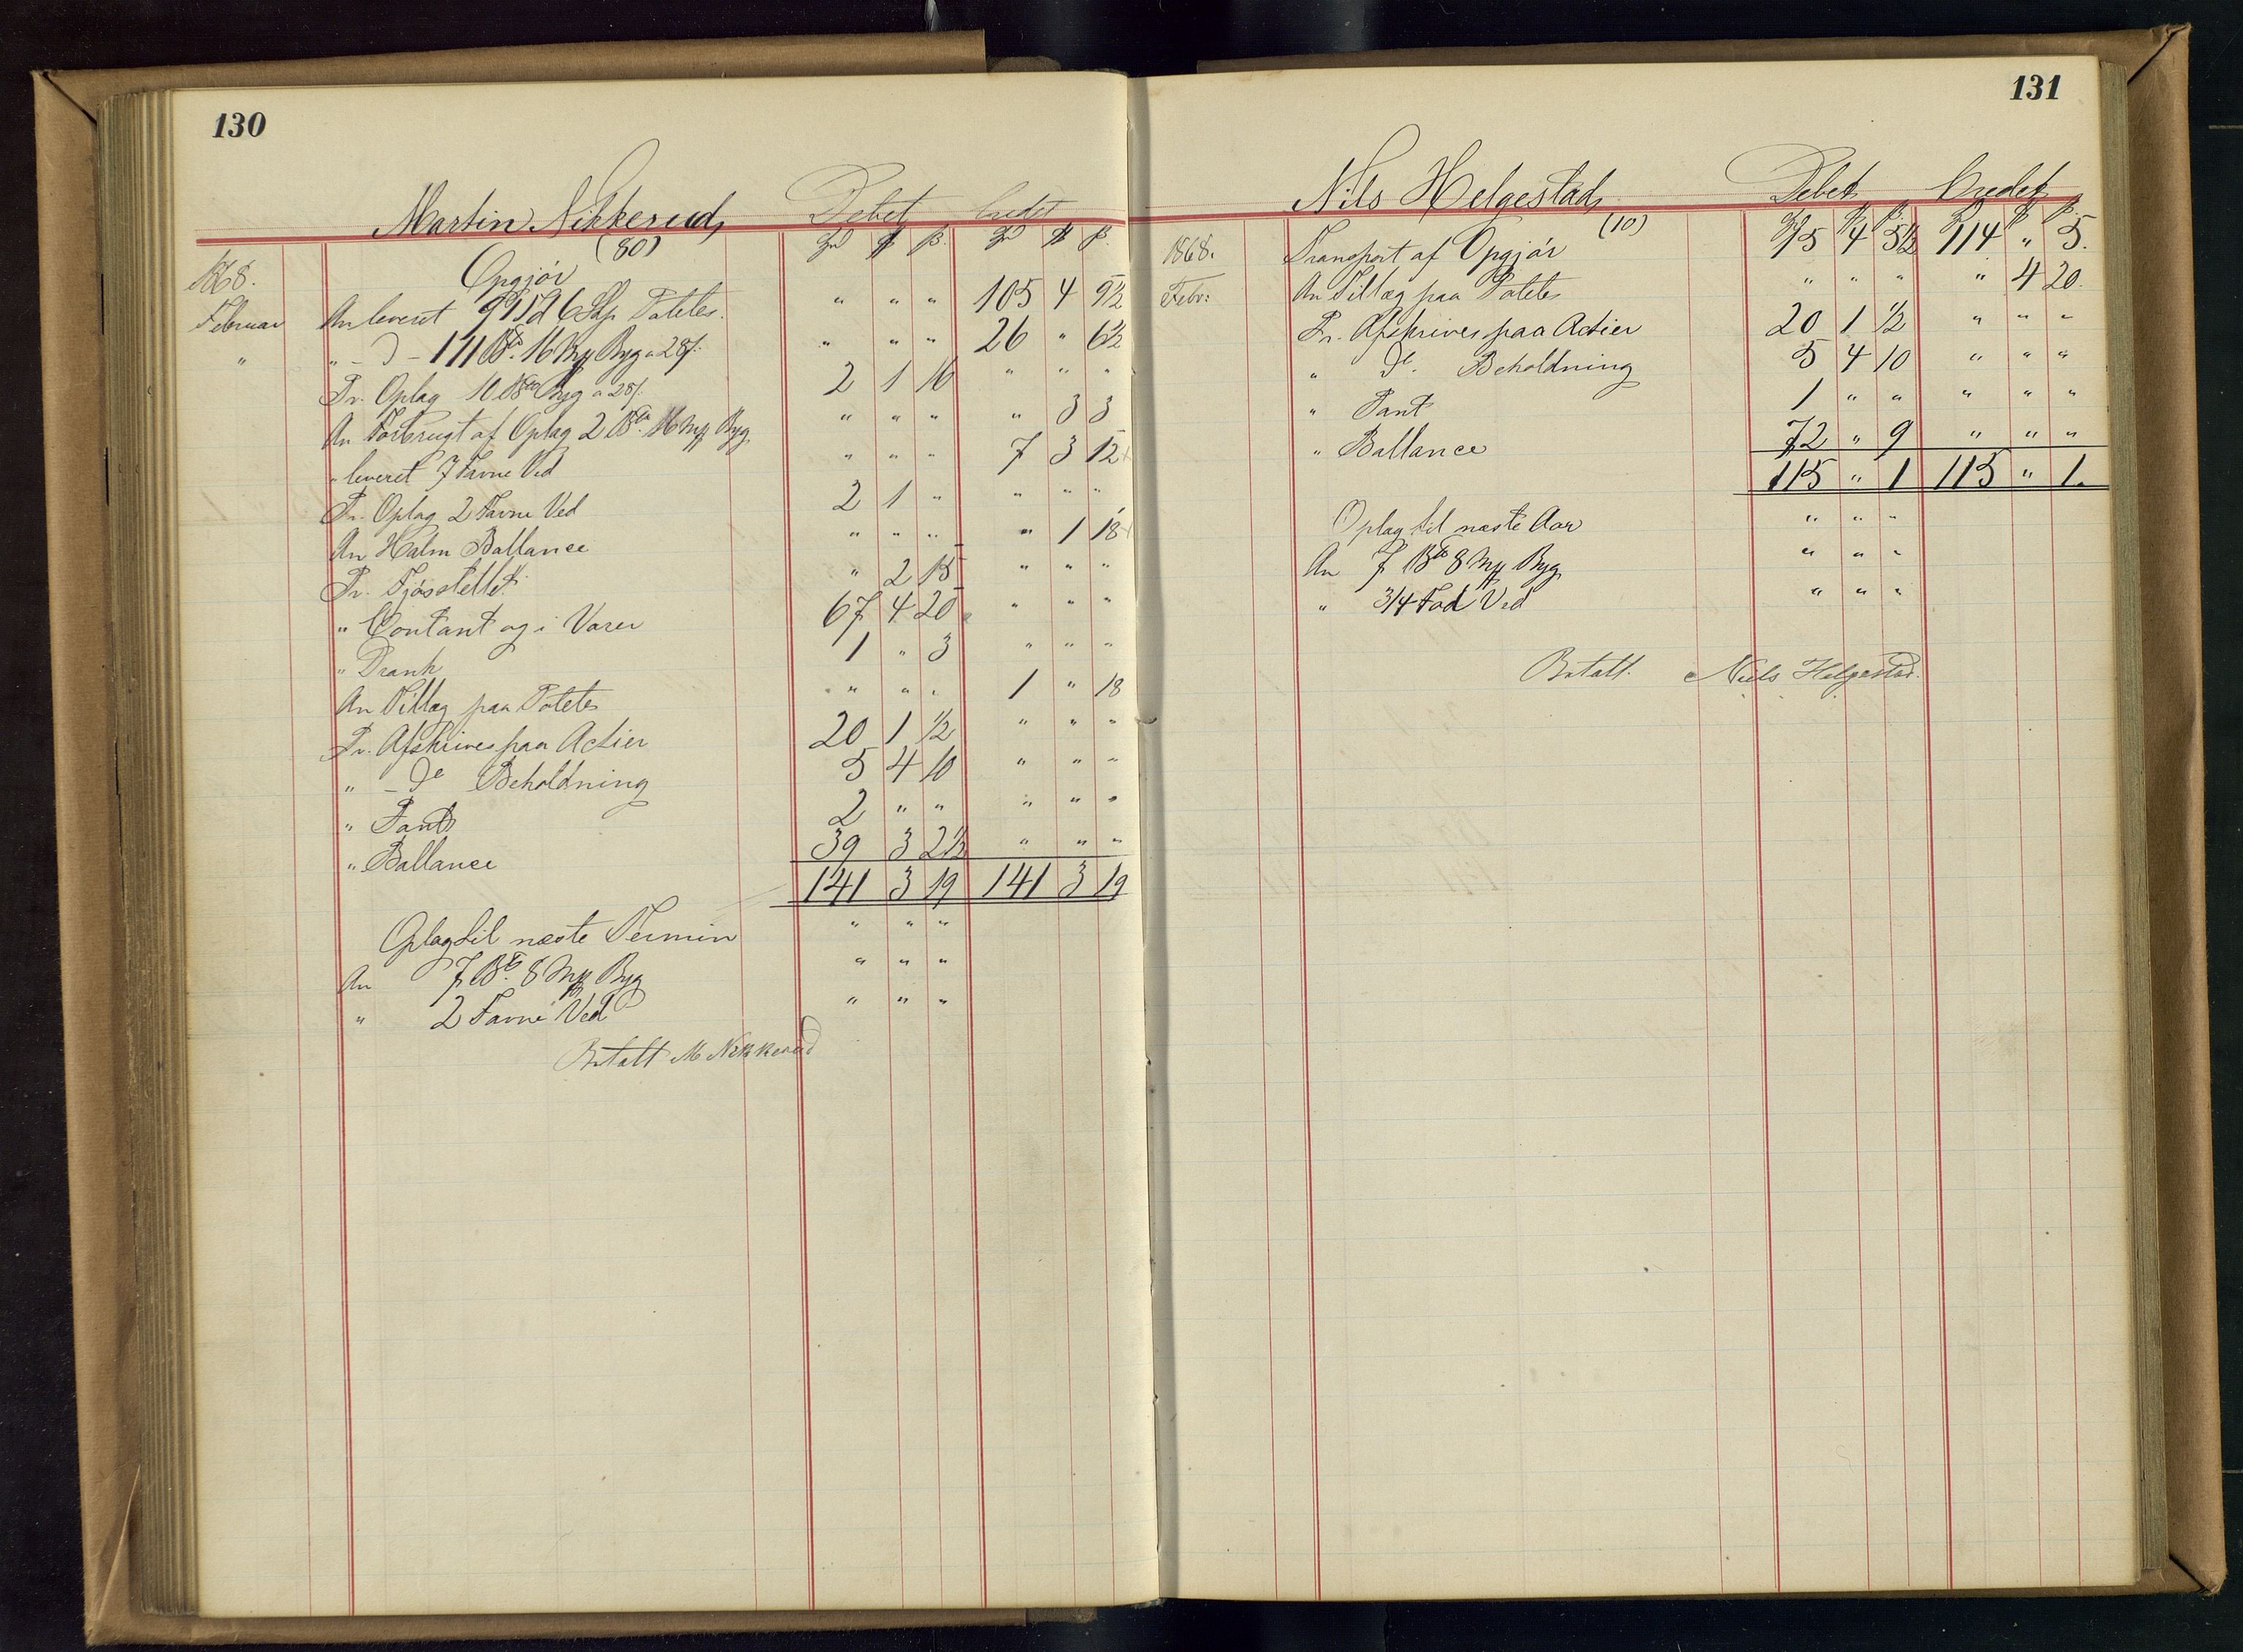 130
Martin Nikkerud, Debet Credet
(80)
Spd # β. Spd # β.
1868. Opgjør
Februar An leveret 99 6 Skp Potetes. " " " 105 4 9½
" " - D - 111 16 Mk Byg a 28/. " " " 26 " 6½
Pr. Oplag 10 Byg a 28/. 2 1 16 " " "
An Forbrugt af Oplag 2 16 Mk Byg " " " " 3 3
" leveret 7 Favne Ved " " " 7 3 12
Pr. Oplag 2 Favne Ved 2 1 " " " "
An Halm Ballance " " " " 1 18
Pr. Fjøsstellet " 2 15 " " "
" Contant og i Varer 67 4 20 " " "
" Drank 1 " 3 " " "
An Tillæg paa Potetes " " " 1 " 18
Pr. Afskrives paa Actier 20 1 ½ " " "
" - Do Beholdning 5 4 10 " " "
" Pant 2 " " " " "
" Ballance 39 3 2½ " " "
141 3 19 141 3 19
Oplag til næste Termin " " "
An 7 8 Mk Byg " " "
" 2 Favne Ved " " "
Betalt M Nikkerud
131
Nils Helgestad, Debet Credet
(10)
1868. Transport af Opgjør 15 4 5½ 114 " 5.
Febr: An Tillæg paa Potetes " " " " 4 20.
Pr. Afskrives paa Actier 20 1 ½ " " "
" Do. Beholdning 5 4 10 " " "
" Pant 1 " " " " "
" Ballance 72 " 9 " " "
115 " 1 115 " 1.
Oplag til næste Aar " " "
An 7 8 Mk Byg " " "
" 3/4 Ved " " "
Betalt. Niels Helgestad.